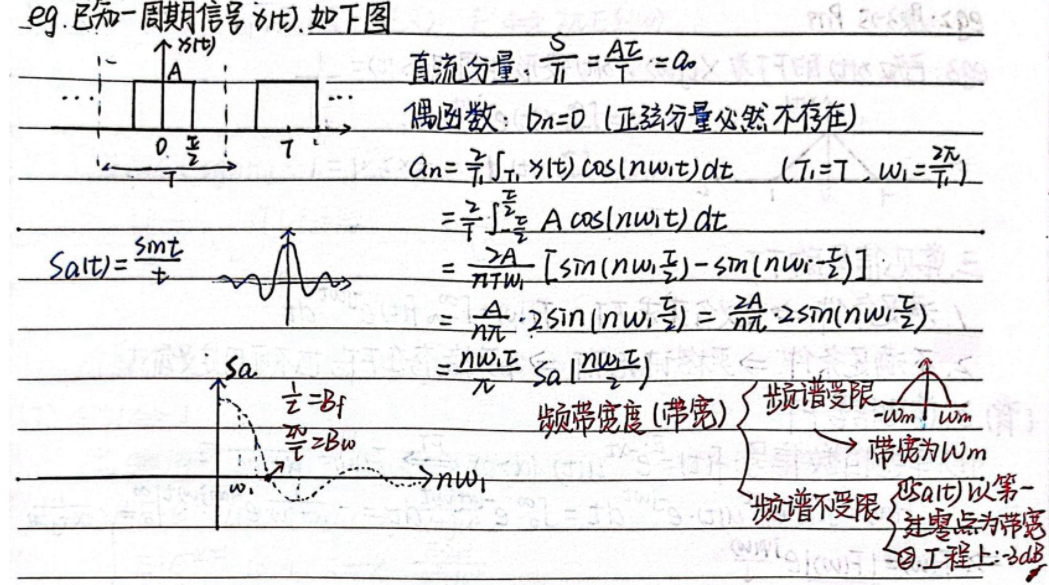 eg.已知一周期信号x(t).如下图
x(t)
A
...
...
0 τ/2 T
T
直流分量: S/T₁ = Aτ/T = a₀
偶函数: bn=0 (正弦分量必然不存在)
an = 2/T₁ ∫T₁ x(t) cos(nω₁t) dt (T₁=T, ω₁=2π/T₁)
= 2/T ∫_{-τ/2}^{τ/2} A cos(nω₁t) dt
= 2A/nTω₁ [sin(nω₁τ/2) - sin(nω₁·-τ/2)]
= A/nπ · 2sin(nω₁τ/2) = 2A/nπ · 2sin(nω₁τ/2)
= nω₁τ/π Sa(nω₁τ/2)
Sa(t) = sint/t
Sa
1/τ = Bf
2π/τ = Bω
ω₁
nω₁
频带宽度(带宽)
频谱受限
-ωm ωm
→ 带宽为ωm
频谱不受限
①Sa(t)以第一
过零点为带宽
②.工程上:-3dB